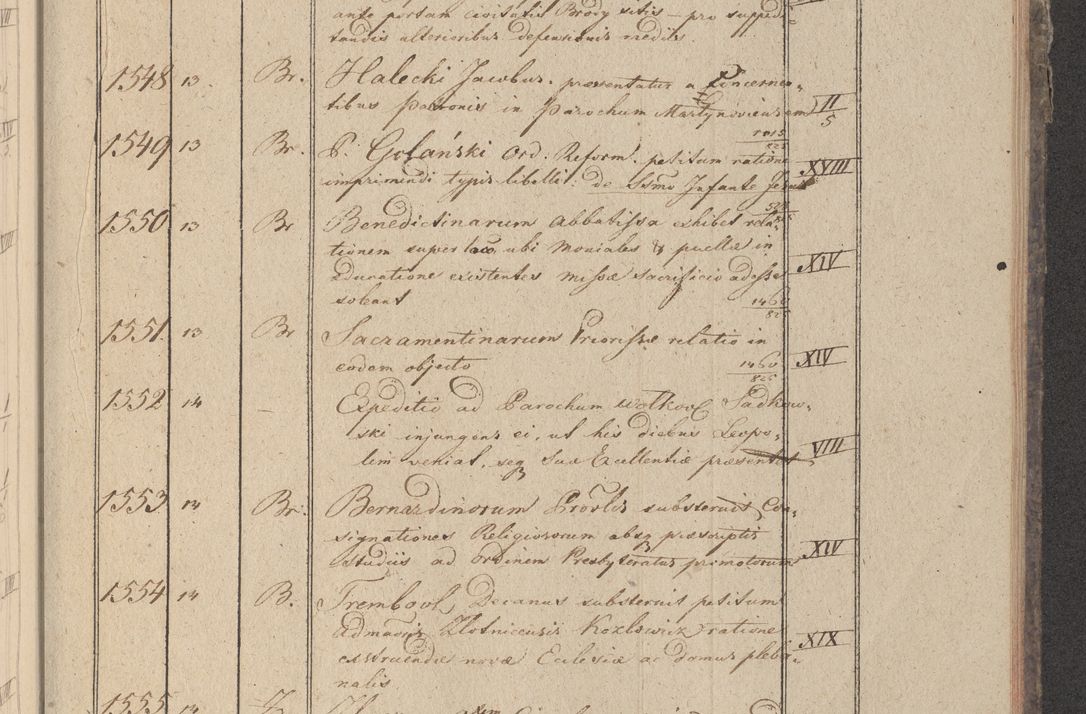 ante portam civitatis Brody sitis – pro suppedi
tandis ulterioribus defensionis mediis.
1548 13 Br. Halecki Jacobus. praesentatus a Concernen-
tibus Patronis in Parochum Martynoviensem II/5
1549 13 Br. P. Golański Ord. Reform. petitum ratione 1015/825
imprimendi typis libelli: de SSmo Infante Jesu XVIII
1550 13 Br Benedictinarum Abbatissa exhibet rela-
tionem super loco, ubi Moniales & puellae in
educatione existentes missae sacrificio adesse XIV
soleant 1460/825
1551. 13 Br Sacramentinarum Priorissae relatio in
eodem objecto 1460/825 XIV
1552 14 – Expeditio ad Parochum Sadkow-
ski injungens ei, ut his diebus Leopo-
lim veniat, seq Suae Excellentiae praesentet VIII
1553 14 Br. Bernardinorum Provlis substernit Con-
signationes Religiosorum absq praescriptis
studiis ad ordinem Presbyteratus promotorum XIV
1554 14 B. Trembovl. Decanus substernit petitum
Admaoris Zlotnicensis Kozlowicz ratione
exstruendae novae Ecclesiae ac domus pleba- XIX
nalis
1555 14